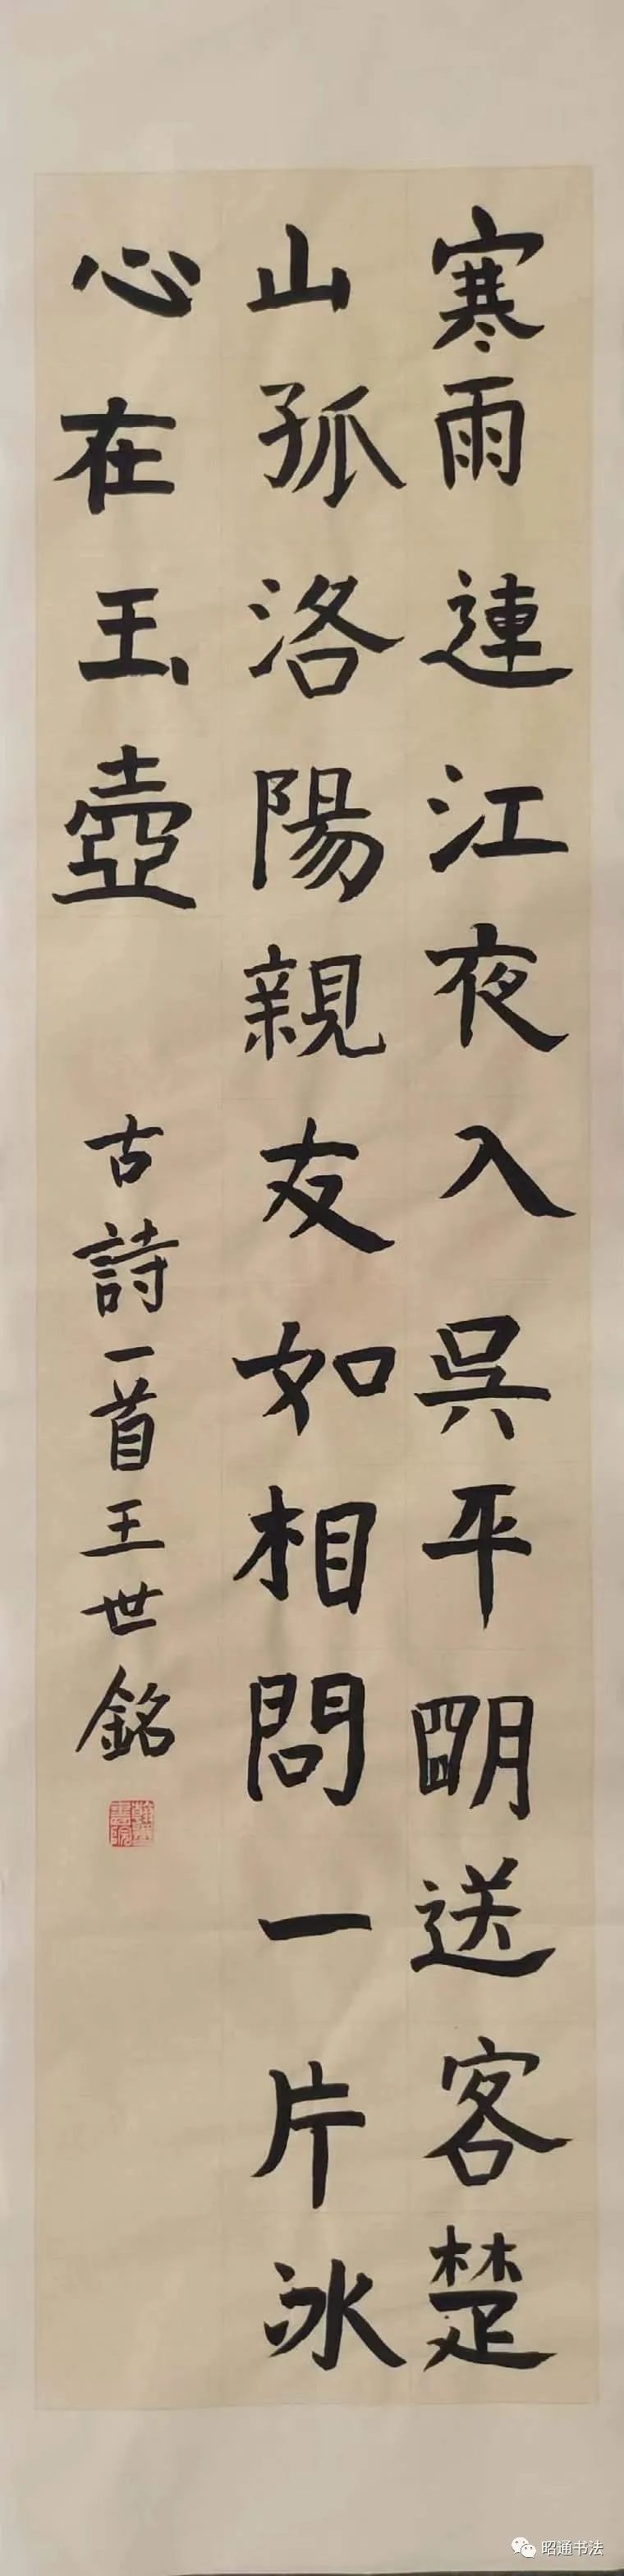 寒雨連江夜入吳平明送客楚
山孤洛陽親友如相問一片冰
心在玉壺
古詩一首王世銘
昭通书法